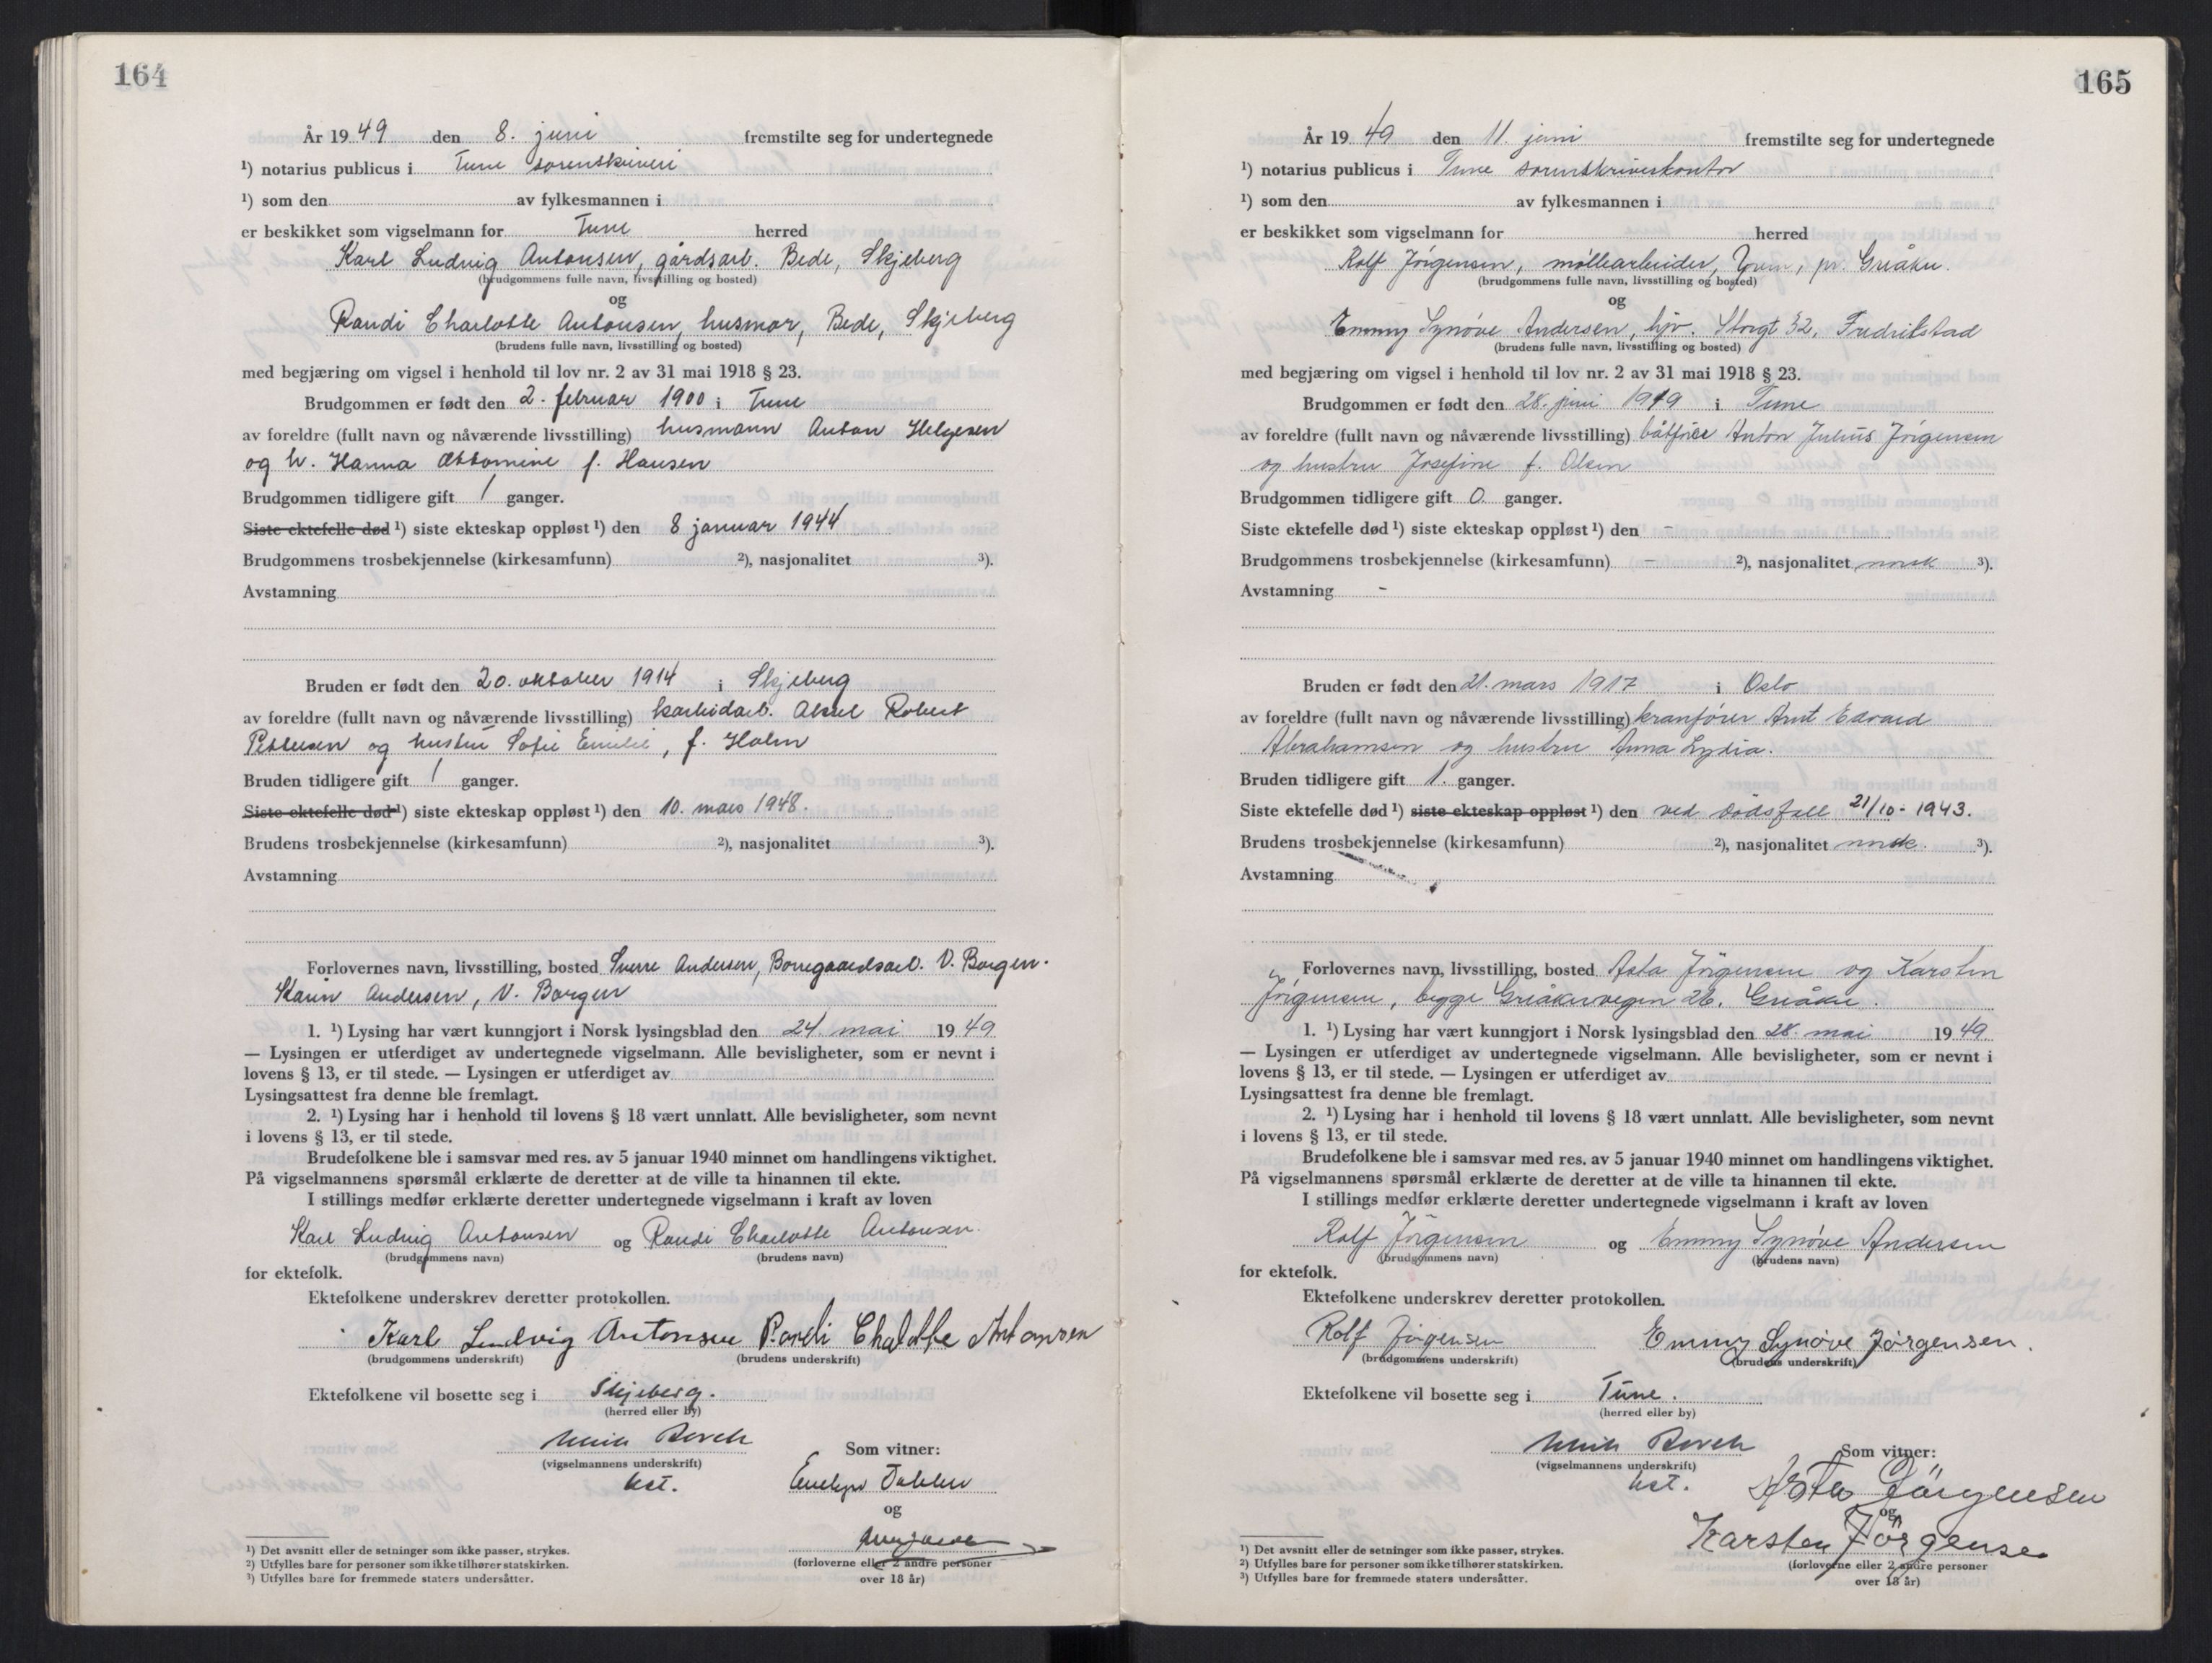 164
År 1949 den 8. juni fremstilte seg for undertegnede
¹) notarius publicus i Tune sorenskriveri
¹) som den av fylkesmannen i
er beskikket som vigselmann for Tune herred
Karl Ludvig Antonsen, gårdsarb. Bede, Skjeberg
(brudgommens fulle navn, livsstilling og bosted)
og
Randi Charlotte Antonsen, husmor, Bede, Skjeberg
(brudens fulle navn, livsstilling og bosted)
med begjæring om vigsel i henhold til lov nr. 2 av 31 mai 1918 § 23.
Brudgommen er født den 2. februar 1900 i Tune
av foreldre (fullt navn og nåværende livsstilling) husmann Anton Helgesen
og h. Hanna Ottomine f. Hansen
Brudgommen tidligere gift 1 ganger.
Siste ektefelle død ¹) siste ekteskap oppløst ¹) den 8 januar 1944
Brudgommens trosbekjennelse (kirkesamfunn) ²), nasjonalitet ³).
Avstamning
Bruden er født den 20. oktober 1914 i Skjeberg
av foreldre (fullt navn og nåværende livsstilling) karbidarb. Aksel Robert
Pettersen og hustru Sofie Emilie, f. Holm
Bruden tidligere gift 1 ganger.
Siste ektefelle død ¹) siste ekteskap oppløst ¹) den 10. mars 1948.
Brudens trosbekjennelse (kirkesamfunn) ²), nasjonalitet ³).
Avstamning
Forlovernes navn, livsstilling, bosted Sverre Andersen, Borregaardsarb. V. Borgen.
Karin Andersen, V. Borgen
1. ¹) Lysing har vært kunngjort i Norsk lysingsblad den 24. mai 1949
— Lysingen er utferdiget av undertegnede vigselmann. Alle bevisligheter, som er nevnt i
lovens § 13, er til stede. — Lysingen er utferdiget av
Lysingsattest fra denne ble fremlagt.
2. ¹) Lysing har i henhold til lovens § 18 vært unnlatt. Alle bevisligheter, som nevnt
i lovens § 13, er til stede.
Brudefolkene ble i samsvar med res. av 5 januar 1940 minnet om handlingens viktighet.
På vigselmannens spørsmål erklærte de deretter at de ville ta hinannen til ekte.
I stillings medfør erklærte deretter undertegnede vigselmann i kraft av loven
Karl Ludvig Antonsen og Randi Charlotte Antonsen.
(brudgommens navn) (brudens navn)
for ektefolk.
Ektefolkene underskrev deretter protokollen.
Karl Ludvig Antonsen Randi Chalotte Antonsen
(brudgommens underskrift) (brudens underskrift)
Ektefolkene vil bosette seg i Skjeberg.
(herred eller by)
Borch
(vigselmannens underskrift)
kst.
Som vitner:
Evelyn
og
(forloverne eller 2 andre personer
over 18 år)
¹) Det avsnitt eller de setninger som ikke passer, strykes.
²) Utfylles bare for personer som ikke tilhører statskirken.
³) Utfylles bare for fremmede staters undersåtter.
165
År 1949 den 11. juni fremstilte seg for undertegnede
¹) notarius publicus i Tune sorenskriverkontor
¹) som den av fylkesmannen i
er beskikket som vigselmann for herred
Rolf Jörgensen, møllearbeider, pr. Greåker.
(brudgommens fulle navn, livsstilling og bosted)
og
Emmy Synøve Andersen, hjv. Storgt 32, Fredrikstad
(brudens fulle navn, livsstilling og bosted)
med begjæring om vigsel i henhold til lov nr. 2 av 31 mai 1918 § 23.
Brudgommen er født den 28. juni 1919 i Tune
av foreldre (fullt navn og nåværende livsstilling) båtfører Anton Julius Jörgensen
og hustru Josefine f. Olsen
Brudgommen tidligere gift 0. ganger.
Siste ektefelle død ¹) siste ekteskap oppløst ¹) den -
Brudgommens trosbekjennelse (kirkesamfunn) - ²), nasjonalitet norsk ³).
Avstamning -
Bruden er født den 21. mars 1917 i Oslo
av foreldre (fullt navn og nåværende livsstilling) kranfører Arnt Edvard
Abrahamsen og hustru Anna Lydia.
Bruden tidligere gift 1. ganger.
Siste ektefelle død ¹) siste ekteskap oppløst ¹) den ved dødsfall 21/10-1943.
Brudens trosbekjennelse (kirkesamfunn) ²), nasjonalitet norsk. ³).
Avstamning
Forlovernes navn, livsstilling, bosted Asta Jörgensen og Karsten
Jörgensen, begge Greåkervegen 26. Greåker.
1. ¹) Lysing har vært kunngjort i Norsk lysingsblad den 28. mai 1949
— Lysingen er utferdiget av undertegnede vigselmann. Alle bevisligheter, som er nevnt i
lovens § 13, er til stede. — Lysingen er utferdiget av
Lysingsattest fra denne ble fremlagt.
2. ¹) Lysing har i henhold til lovens § 18 vært unnlatt. Alle bevisligheter, som nevnt
i lovens § 13, er til stede.
Brudefolkene ble i samsvar med res. av 5 januar 1940 minnet om handlingens viktighet.
På vigselmannens spørsmål erklærte de deretter at de ville ta hinannen til ekte.
I stillings medfør erklærte deretter undertegnede vigselmann i kraft av loven
Rolf Jörgensen og Emmy Synøve Andersen
(brudgommens navn) (brudens navn)
for ektefolk.
Ektefolkene underskrev deretter protokollen.
Rolf Jörgensen Emmy Synøve Jørgensen.
(brudgommens underskrift) (brudens underskrift)
Ektefolkene vil bosette seg i Tune.
(herred eller by)
Borch
(vigselmannens underskrift)
kst.
Som vitner:
Asta Jörgensen
og
Karsten Jörgensen
(forloverne eller 2 andre personer
over 18 år)
¹) Det avsnitt eller de setninger som ikke passer, strykes.
²) Utfylles bare for personer som ikke tilhører statskirken.
³) Utfylles bare for fremmede staters undersåtter.